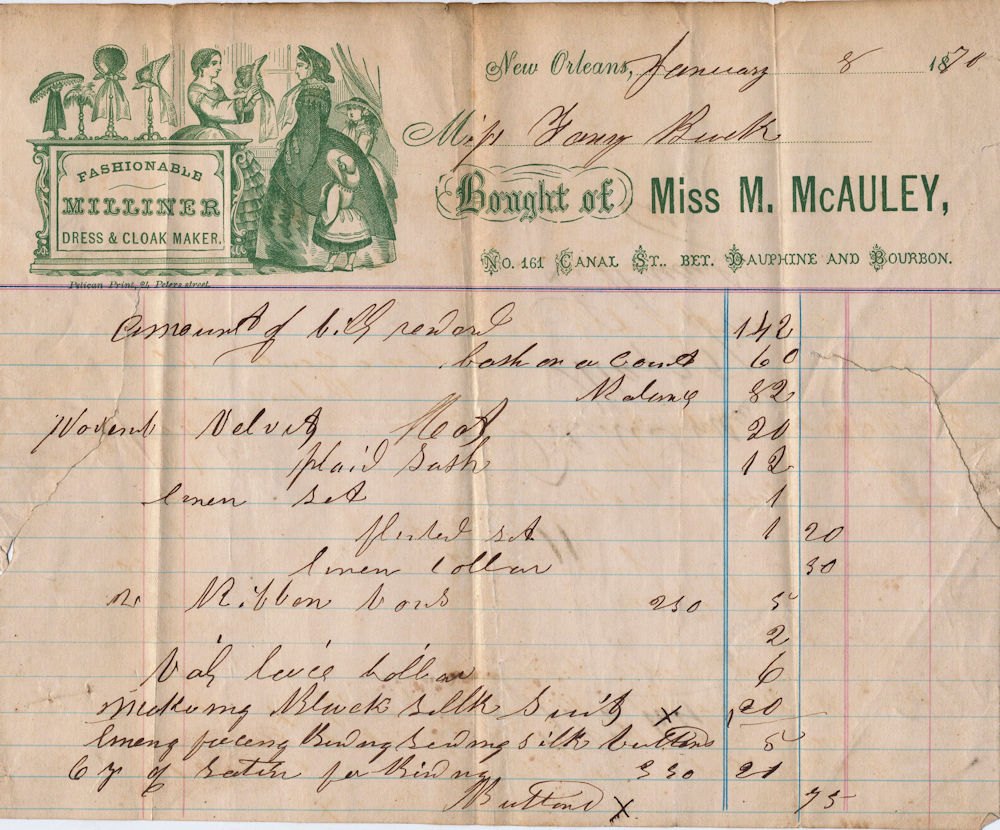 New Orleans, January 8 1870
Miss Fany Buck
Bought of Miss M. McAULEY,
No. 161 Canal St.. bet. Dauphine and Bourbon.
FASHIONABLE
MILLINER
DRESS & CLOAK MAKER.
Pelican Print, 24 Peters street.
Amount of bill 142
Cash on a count 60
82
Velvet Hat 20
plaid Sash 12
linen set 1
set 1 20
linen Collar 50
Ribbon 250 5
2
Val Collar 6
Black silk Suit x 20
silk buttons 5
6 y of satin for 350 21
Buttons x 75